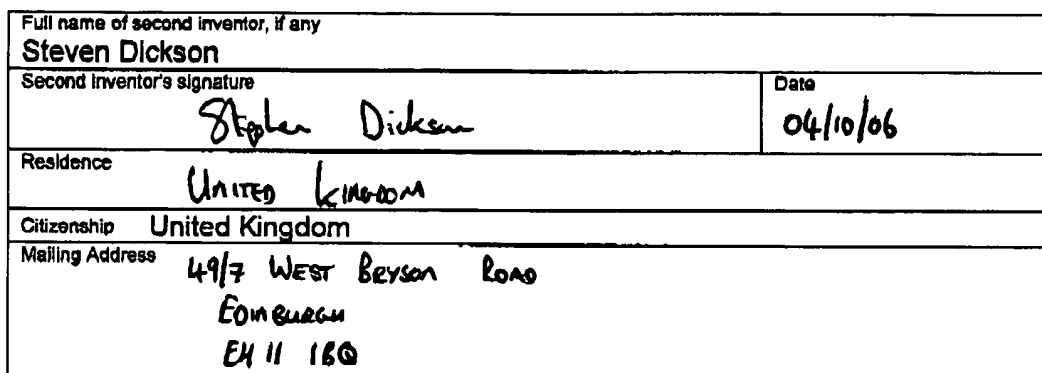 Full name of second inventor, if any
Steven Dickson
Second inventor's signature
Stephen Dickson
Date
04/10/06
Residence
UNITED KINGDOM
Citizenship United Kingdom
Mailing Address
49/7 WEST BRYSON ROAD
EDINBURGH
EH11 1BQ